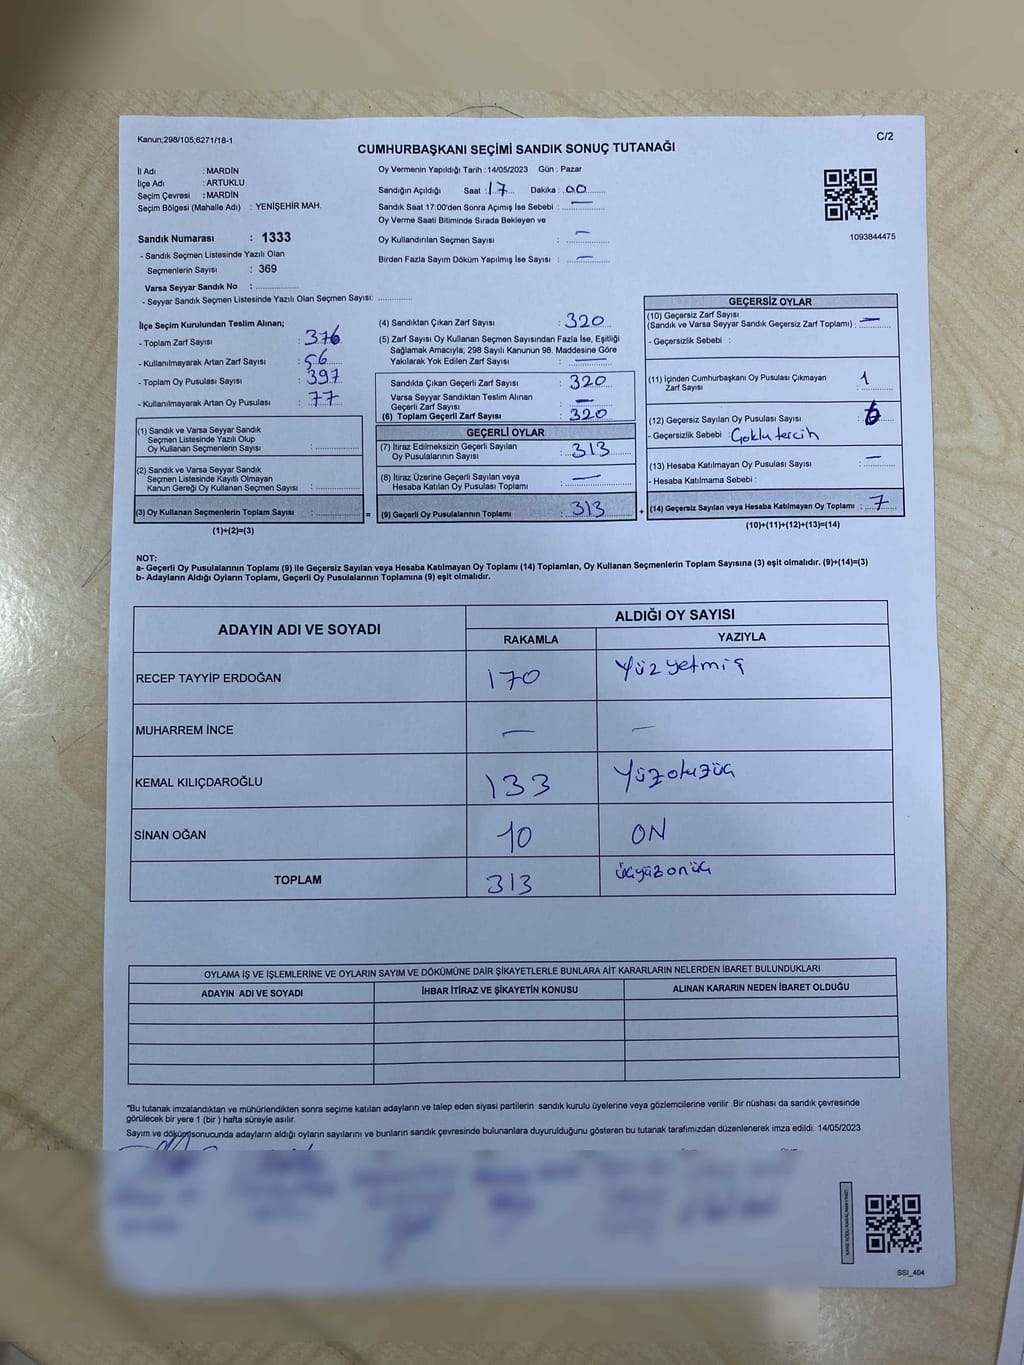 Kanun;298/105;6271/18-1
C/2
CUMHURBAŞKANI SEÇİMİ SANDIK SONUÇ TUTANAĞI
İl Adı : MARDİN
İlçe Adı : ARTUKLU
Seçim Çevresi : MARDİN
Seçim Bölgesi (Mahalle Adı) : YENİŞEHİR MAH.
Sandık Numarası : 1333
- Sandık Seçmen Listesinde Yazılı Olan
Seçmenlerin Sayısı : 369
Varsa Seyyar Sandık No : ..............
- Seyyar Sandık Seçmen Listesinde Yazılı Olan Seçmen Sayısı: ..............
Oy Vermenin Yapıldığı Tarih : 14/05/2023 Gün : Pazar
Sandığın Açıldığı Saat : 17 Dakika : 00
Sandık Saat 17:00'den Sonra Açımış İse Sebebi : —
Oy Verme Saati Bitiminde Sırada Bekleyen ve
Oy Kullandırılan Seçmen Sayısı : —
Birden Fazla Sayım Döküm Yapılmış İse Sayısı : —
1093844475
İlçe Seçim Kurulundan Teslim Alınan;
- Toplam Zarf Sayısı : 376
- Kullanılmayarak Artan Zarf Sayısı : 56
- Toplam Oy Pusulası Sayısı : 397
- Kullanılmayarak Artan Oy Pusulası : 77
(1) Sandık ve Varsa Seyyar Sandık
Seçmen Listesinde Yazılı Olup
Oy Kullanan Seçmenlerin Sayısı :
(2) Sandık ve Varsa Seyyar Sandık
Seçmen Listesinde Kayıtlı Olmayan
Kanun Gereği Oy Kullanan Seçmen Sayısı :
(3) Oy Kullanan Seçmenlerin Toplam Sayısı :
(1)+(2)=(3)
(4) Sandıktan Çıkan Zarf Sayısı : 320
(5) Zarf Sayısı Oy Kullanan Seçmen Sayısından Fazla İse, Eşitliği
Sağlamak Amacıyla; 298 Sayılı Kanunun 98. Maddesine Göre
Yakılarak Yok Edilen Zarf Sayısı : —
Sandıkta Çıkan Geçerli Zarf Sayısı : 320
Varsa Seyyar Sandıktan Teslim Alınan
Geçerli Zarf Sayısı : —
(6) Toplam Geçerli Zarf Sayısı : 320
GEÇERLİ OYLAR
(7) İtiraz Edilmeksizin Geçerli Sayılan
Oy Pusulalarının Sayısı : 313
(8) İtiraz Üzerine Geçerli Sayılan veya
Hesaba Katılan Oy Pusulası Toplamı : —
= (9) Geçerli Oy Pusulalarının Toplamı : 313 +
GEÇERSİZ OYLAR
(10) Geçersiz Zarf Sayısı
(Sandık ve Varsa Seyyar Sandık Geçersiz Zarf Toplamı) : —
- Geçersizlik Sebebi :
(11) İçinden Cumhurbaşkanı Oy Pusulası Çıkmayan
Zarf Sayısı : 1
(12) Geçersiz Sayılan Oy Pusulası Sayısı : 6
- Geçersizlik Sebebi Çoklu tercih
(13) Hesaba Katılmayan Oy Pusulası Sayısı : —
- Hesaba Katılmama Sebebi :
(14) Geçersiz Sayılan veya Hesaba Katılmayan Oy Toplamı : 7
(10)+(11)+(12)+(13)=(14)
NOT:
a- Geçerli Oy Pusulalarının Toplamı (9) ile Geçersiz Sayılan veya Hesaba Katılmayan Oy Toplamı (14) Toplamları, Oy Kullanan Seçmenlerin Toplam Sayısına (3) eşit olmalıdır. (9)+(14)=(3)
b- Adayların Aldığı Oyların Toplamı, Geçerli Oy Pusulalarının Toplamına (9) eşit olmalıdır.
ADAYIN ADI VE SOYADI
ALDIĞI OY SAYISI
RAKAMLA YAZIYLA
RECEP TAYYİP ERDOĞAN 170 Yüz yetmiş
MUHARREM İNCE — —
KEMAL KILIÇDAROĞLU 133 Yüzotuzüç
SİNAN OĞAN 10 ON
TOPLAM 313 üçyüzonüç
OYLAMA İŞ VE İŞLEMLERİNE VE OYLARIN SAYIM VE DÖKÜMÜNE DAİR ŞİKAYETLERLE BUNLARA AİT KARARLARIN NELERDEN İBARET BULUNDUKLARI
ADAYIN ADI VE SOYADI İHBAR İTİRAZ VE ŞİKAYETİN KONUSU ALINAN KARARIN NEDEN İBARET OLDUĞU
*Bu tutanak imzalandıktan ve mühürlendikten sonra seçime katılan adayların ve talep eden siyasi partilerin sandık kurulu üyelerine veya gözlemcilerine verilir .Bir nüshası da sandık çevresinde
görülecek bir yere 1 (bir ) hafta süreyle asılır.
Sayım ve döküm sonucunda adayların aldığı oyların sayılarını ve bunların sandık çevresinde bulunanlara duyurulduğunu gösteren bu tutanak tarafımızdan düzenlenerek imza edildi. 14/05/2023
SSI_404